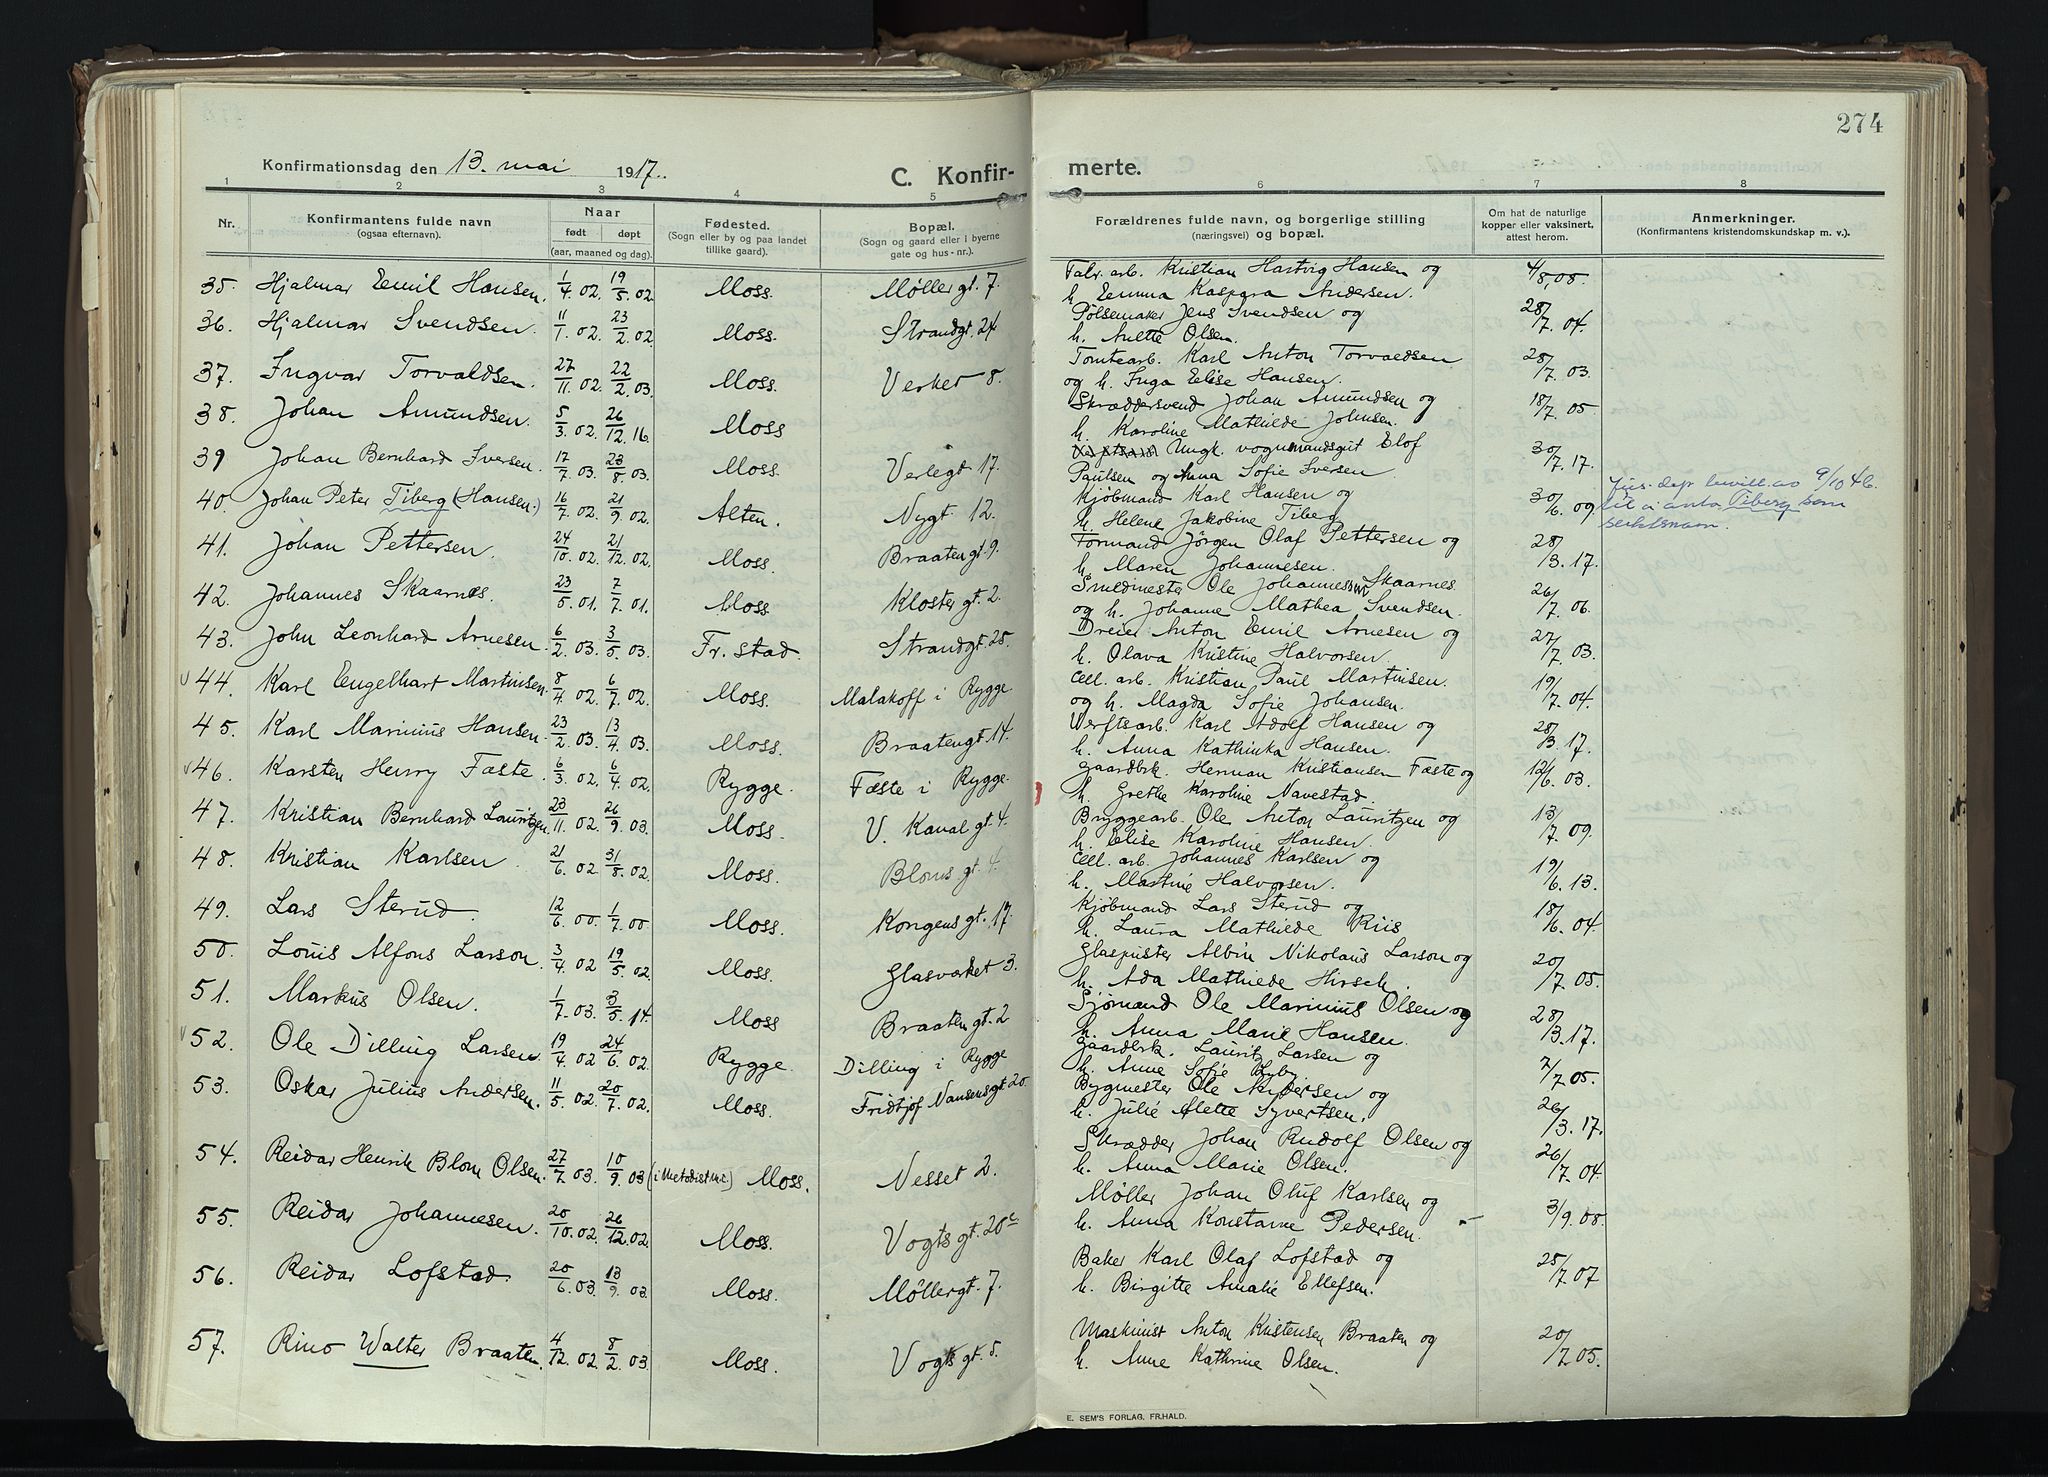 274
Konfirmationsdag den 13. mai 1917.
C. Konfirmerte.
1 2 3 4 5 6 7 8
Nr. Konfirmantens fulde navn (ogsaa efternavn). Naar født døpt (aar, maaned og dag). Fødested. (Sogn eller by og paa landet tillike gaard). Bopæl. (Sogn og gaard eller i byerne gate og hus-nr.). Forældrenes fulde navn, og borgerlige stilling (næringsvei) og bopæl. Om hat de naturlige kopper eller vaksinert, attest herom. Anmerkninger. (Konfirmantens kristendomskundskap m. v.).
35. Hjalmar Emil Hansen. 1/4. 02. 19/5. 02. Moss. Møllergt. 7. Fabr. arb. Kristian Hartvig Hansen og 4/8, 08.
h. Emma Kaspara Andersen.
36. Hjalmar Svendsen. 11/1. 02. 23/2. 02. Moss. Strandgt. 24 Pølsemaker Jens Svendsen og 28/7. 04.
h. Anette Olsen.
37. Ingvar Torvaldsen. 27/11. 02. 22/2. 03. Moss. Verket 8. Tomtearb. Karl Anton Torvaldsen 28/7. 03.
og h. Inga Elise Hansen.
38. Johan Amundsen. 5/3. 02. 26/12. 16. Moss Skræddersvend Johan Amundsen og 18/7. 05.
h. Karoline Mathilde Johnsen.
39 Johan Bernhard Iversen. 17/7. 03. 23/8. 03. Moss. Verlegt 17. Ungk. vognmandsgut Elof 30/7. 17.
Paulsen og Anna Sofie Iversen
40. Johan Peter Tiberg (Hansen.) 16/7. 02. 21/9. 02. Alten. Nygt. 12. Kjøbmand Karl Hansen og 30/6. 09. Jus. dep bevill. av 9/10 46.
h. Helene Jakobine Tiberg til å anta Tiberg som
slektsnavn.
41. Johan Pettersen. 24/10. 02. 21/12. 02. Moss. Braatengt. 9. Formand Jørgen Olaf Pettersen og 28/3. 17.
h. Maren Johannesen.
42. Johannes Skaarnes. 23/5. 01. 7/7. 01. Moss. Kloster gt. 2. Smedmester Ole Johannessen Skaarnes 26/7. 06.
og h. Johanne Mathea Svendsen.
43. John Leonhard Arnesen. 6/2. 03. 3/5. 03. Fr. stad. Strandgt. 25. Dreier Anton Emil Arnesen og 27/7. 03.
h. Olava Kristine Halvorsen.
v 44. Karl Engelhart Martinsen. 8/4. 02. 6/7. 02. Moss. Malakoff i Rygge. Cell. arb. Kristian Paul Martinsen. 19/7. 04.
og h. Magda Sofie Johansen.
45. Karl Marinius Hansen. 23/2. 03. 13/4. 03. Moss. Braatengt. 14. Verftsarb. Karl Adolf Hansen og 28/3. 17.
h. Anna Kathinka Hansen.
v 46. Karsten Henry Fæste. 6/3. 02. 6/4. 02. Rygge. Fæste i Rygge. Gaardbrk. Herman Kristiansen Fæste og 12/6. 03.
h. Grethe Karoline Navestad.
47. Kristian Bernhard Lauritzen. 23/11. 02. 26/9. 03. Moss. V. Kanal gt. 4. Bryggearb. Ole Anton Lauritzen og 13/7. 09.
h. Elise Karoline Hansen.
48. Kristian Karlsen. 21/6. 02. 31/8. 02. Moss. Bloms gt. 4. Cell. arb. Johannes Karlsen og 19/6. 13.
h. Martine Halvorsen.
49. Lars Sterud. 12/6. 00. 1/7. 00. Moss. Kongens gt. 17. Kjøbmand Lars Sterud og 18/6. 04.
h. Laura Mathilde Riis
50. Louis Alfons Larson. 3/4. 02 19/5. 02. Moss. Glasværket 3. Glaspuster Albin Nikolaus Larson og 20/7. 05.
h. Ada Mathilde Hirsch.
51. Markus Olsen. 1/7. 03. 3/5. 14. Moss Braaten gt. 2 Sjømand Ole Marinius Olsen og 28/3. 17.
h. Anna Marie Hansen.
v 52. Ole Dilling Larsen. 19/4. 02 24/6. 02. Rygge. Dilling i Rygge Gaardbrk. Lauritz Larsen og 7/7. 05.
h. Anne Sofie Lyby.
53. Oskar Julius Andersen. 11/5. 02. 20/7. 02. Moss. Fridtjof Nansensgt. 20. Bygmester Ole Andersen og 26/3. 17.
h. Julie Alette Syvertsen.
54. Reidar Henrik Blom Olsen. 27/7. 03. 10/9. 03 (i Metodistm.) Moss. Nesset 2. Skrædder Johan Rudolf Olsen og 26/7. 04.
h. Anna Marie Olsen.
55. Reidar Johannesen. 20/10. 02. 26/12. 02. Moss. Vogts gt. 20c Møller Johan Oluf Karlsen og 3/9. 08.
h. Anna Konstanse Pedersen.
56. Reidar Lofstad. 20/6. 03. 13/9. 03. Moss. Møllergt. 7. Baker Karl Olaf Lofstad og 25/7. 07
h. Birgitte Amalie Ellefsen.
57. Rino Walter Braaten. 4/12. 02. 8/2. 03. Moss. Vogts gt. 5. Maskinist Anton Kristensen Braaten og 20/7. 05.
h. Anne Kathrine Olsen.
E. SEM'S FORLAG, FR.HALD.